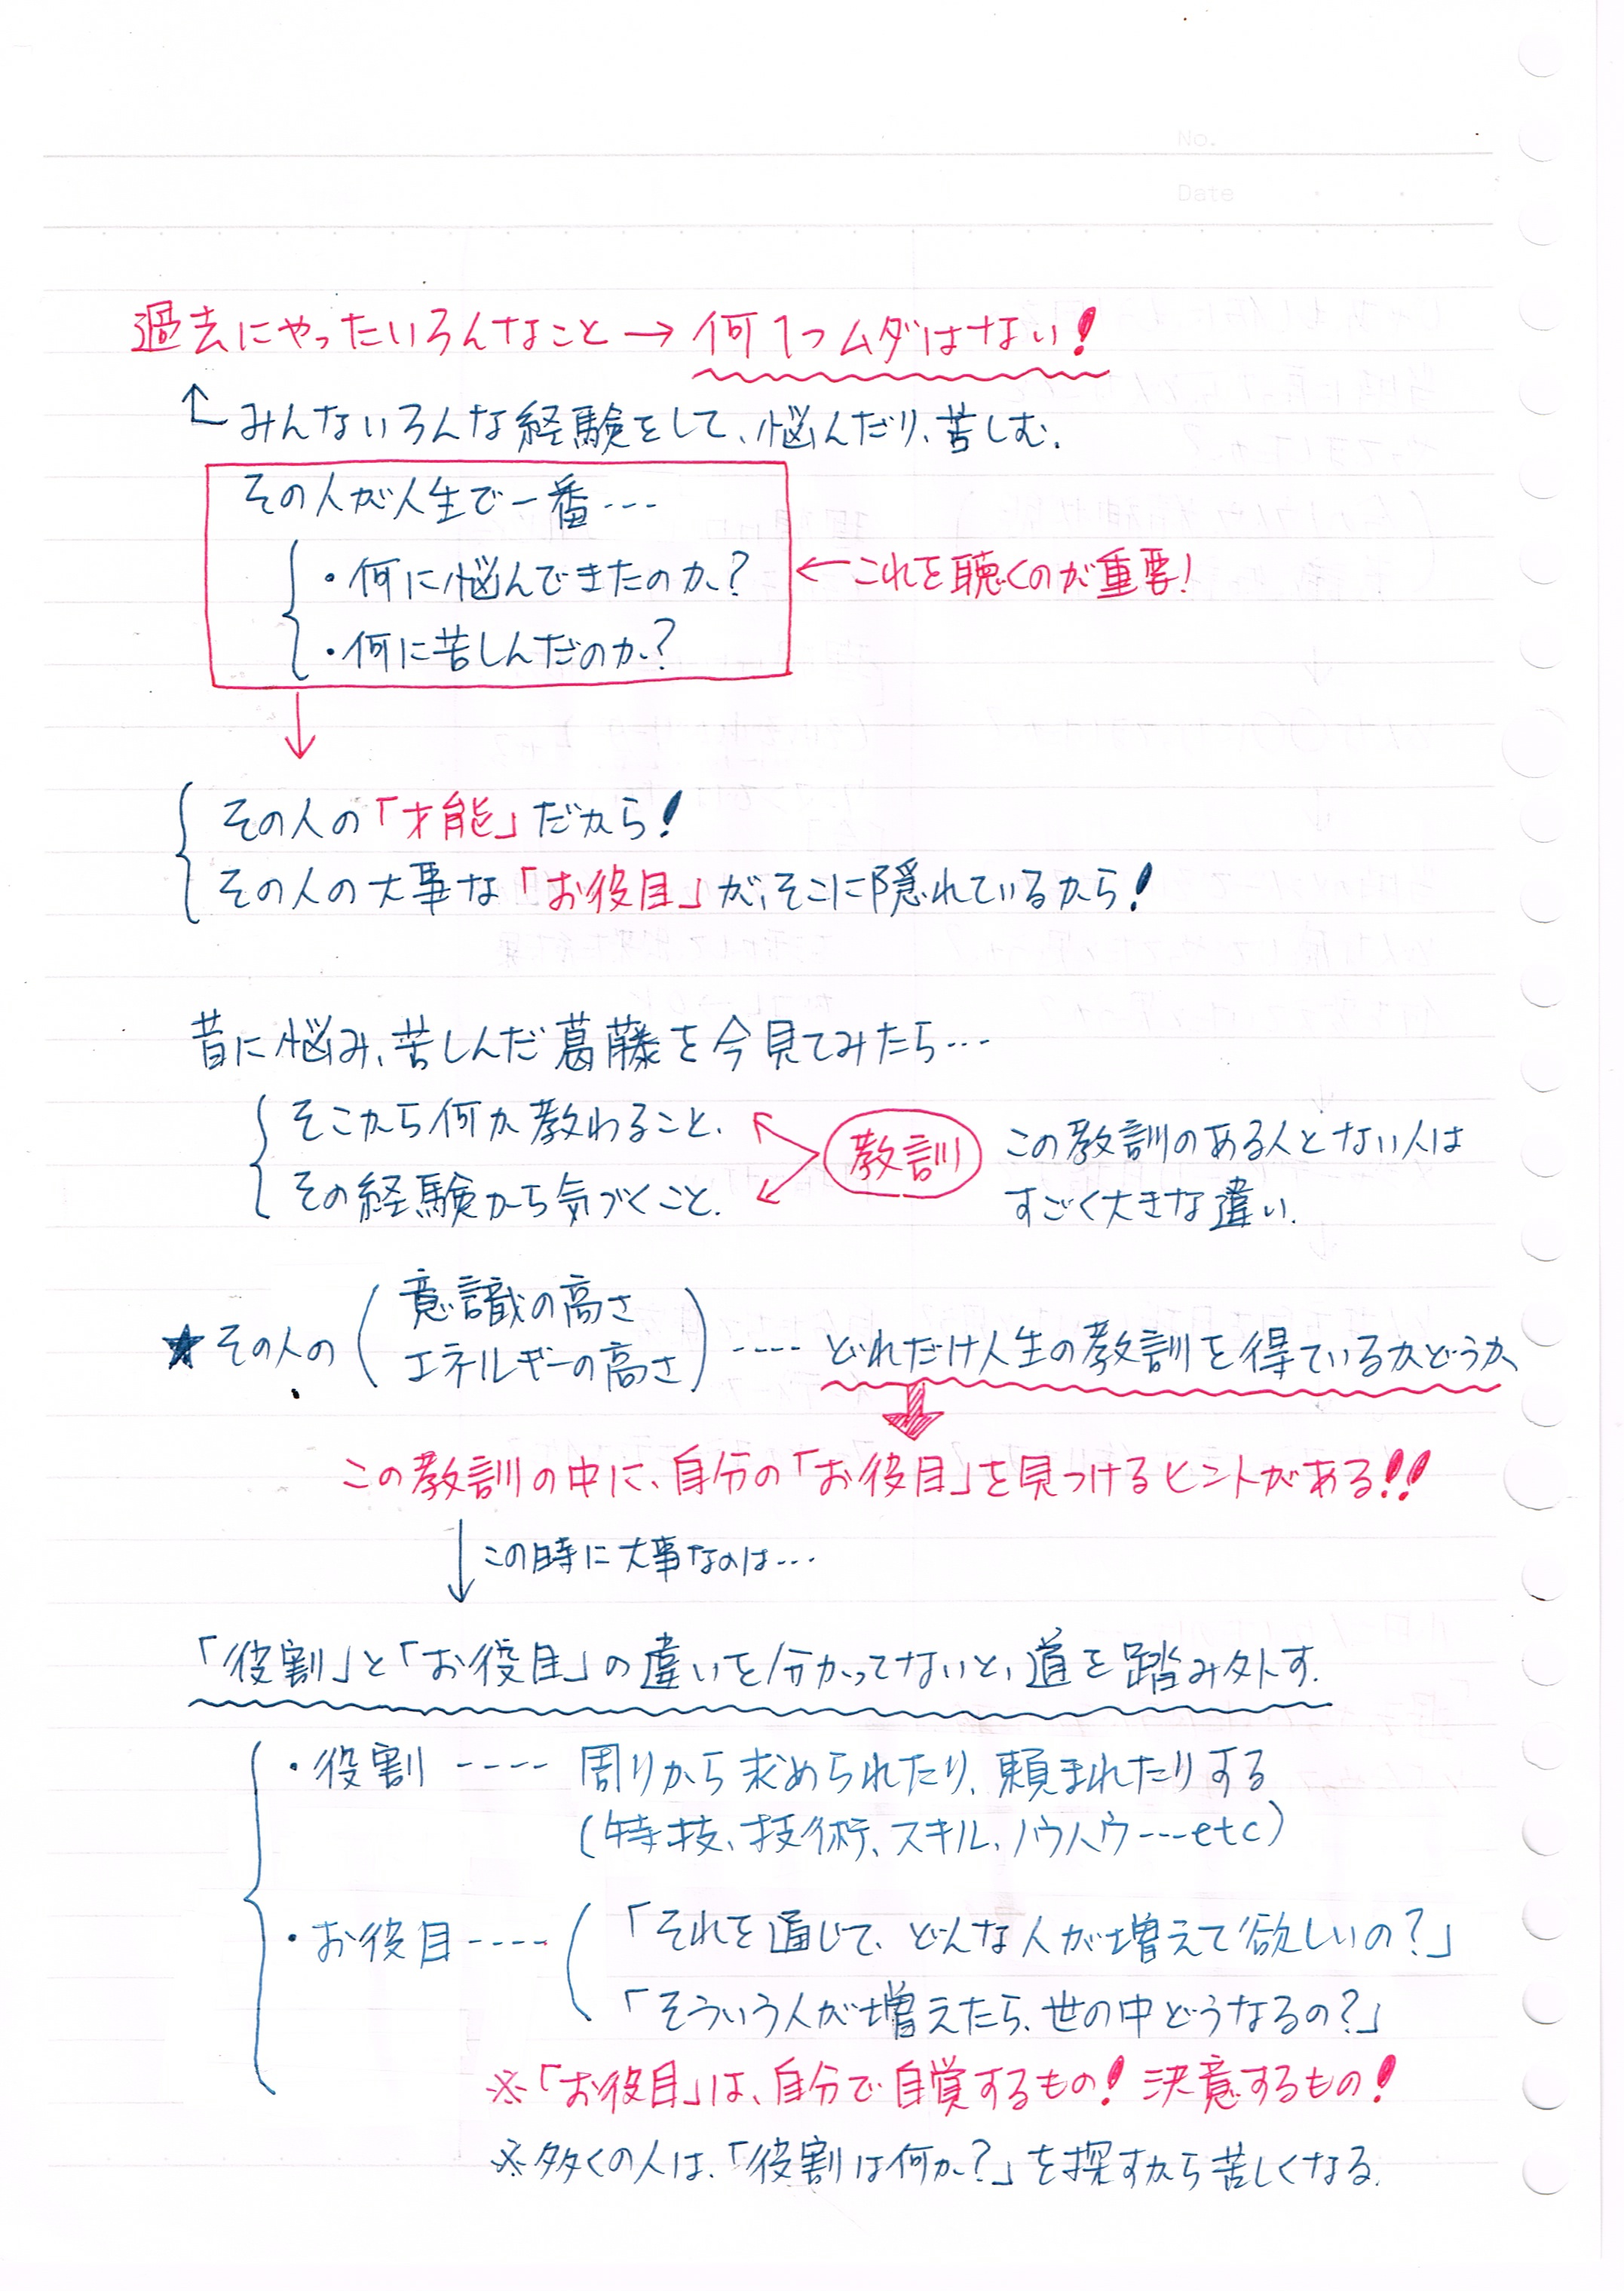 No.
Date
過去にやったいろんなこと → 何1つムダはない!
みんないろんな経験をして、悩んだり、苦しむ.
その人が人生で一番…
・何に悩んできたのか?
←これを聴くのが重要!
・何に苦しんだのか?
その人の「才能」だから!
その人の大事な「お役目」が、そこに隠れているから!
昔に悩み、苦しんだ葛藤を今見てみたら…
そこから何か教わること.
その経験から気づくこと.
教訓
この教訓のある人とない人は
すごく大きな違い.
★その人の(意識の高さ
エネルギーの高さ)---- どれだけ人生の教訓を得ているかどうか
この教訓の中に、自分の「お役目」を見つけるヒントがある!!
↓この時に大事なのは…
「役割」と「お役目」の違いを分かってないと、道を踏み外す.
・役割 ---- 周りから求められたり、頼まれたりする
(特技、技術、スキル、ノウハウ---etc)
・お役目 ---- 「それを通じて、どんな人が増えて欲しいの?」
「そういう人が増えたら、世の中どうなるの?」
※「お役目」は、自分で自覚するもの! 決意するもの!
※多くの人は、「役割は何か?」を探すから苦しくなる.